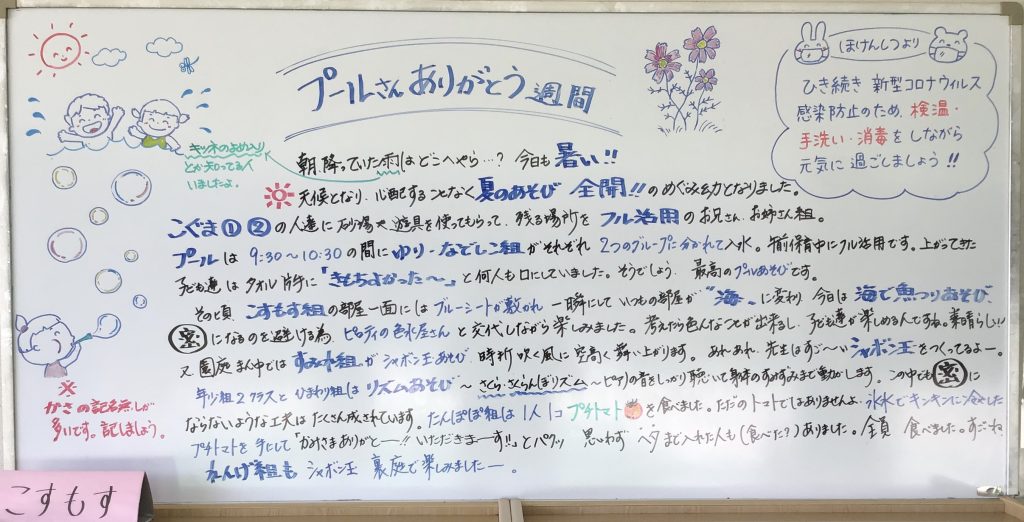 プールさんありがとう週間
ほけんしつより
ひき続き 新型コロナウィルス
感染防止のため、検温・
手洗い・消毒をしながら
元気に過ごしましょう!!
キツネのよめ入り
とか知ってる人
いましたよ。
朝、降っていた雨はどこへやら…? 今日も 暑い!!
天候となり、心配することなく 夏のあそび 全開!! のめぐみ
となりました。
こぐま①②の人達に砂場や遊具を使ってもらって、残る場所を フル活用 のお兄さん、お姉さん組。
プールは 9:30〜10:30 の間に ゆり・なでしこ組 がそれぞれ 2つのグループに分かれて入水。午前保育中にフル活用です。上がってきた
子ども達は タオル片手に「きもちよかった〜」と何人も口にしていました。そうでしょう、最高のプールあそびです。
その頃 こすもす組の部屋一面には ブルーシートが敷かれ 一瞬にして いつもの部屋が “海” に変わり 今日は 海で魚つりあそび、
密 になるのを避ける為、ピロティの色水屋さん と交代しながら楽しみました。考えたら色んなことが出来るし、子ども達が楽しめるんですね。素晴らしい!!
又、園庭まん中では すみれ組 が シャボン玉あそび、時折 吹く風に空高く舞い上がります。あれあれ、先生はすご〜い シャボン玉 をつくってるよー。
年少組2クラスと ひまわり組は リズムあそび 〜さくら・さくらんぼリズム〜 ピアノの音をしっかり聴いて身体のすみずみまで動かします。この中でも 密 に
ならないような工夫は たくさん成されています。たんぽぽ組は 1人1コ プチトマト を食べました。ただのトマトではありませんよ。氷水でキンキンに冷やした
プチトマトを 手にして「かみさまありがとー!! いただきまーす!!」とパクッ 思わず ヘタまで入れた人も(食べた?)ありました。全員 食べました。すご〜いね
れんげ組も シャボン玉 裏庭で楽しみましたー。
※
かさの記名無しが
多いです。記しましょう。
こすもす